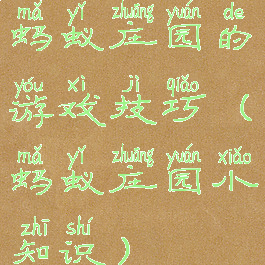 mǎ yǐ zhuāng yuán de
蚂蚁庄园的
yóu xì jì qiǎo
游戏技巧（
mǎ yǐ zhuāng yuán xiǎo
蚂蚁庄园小
zhī shí
知识）